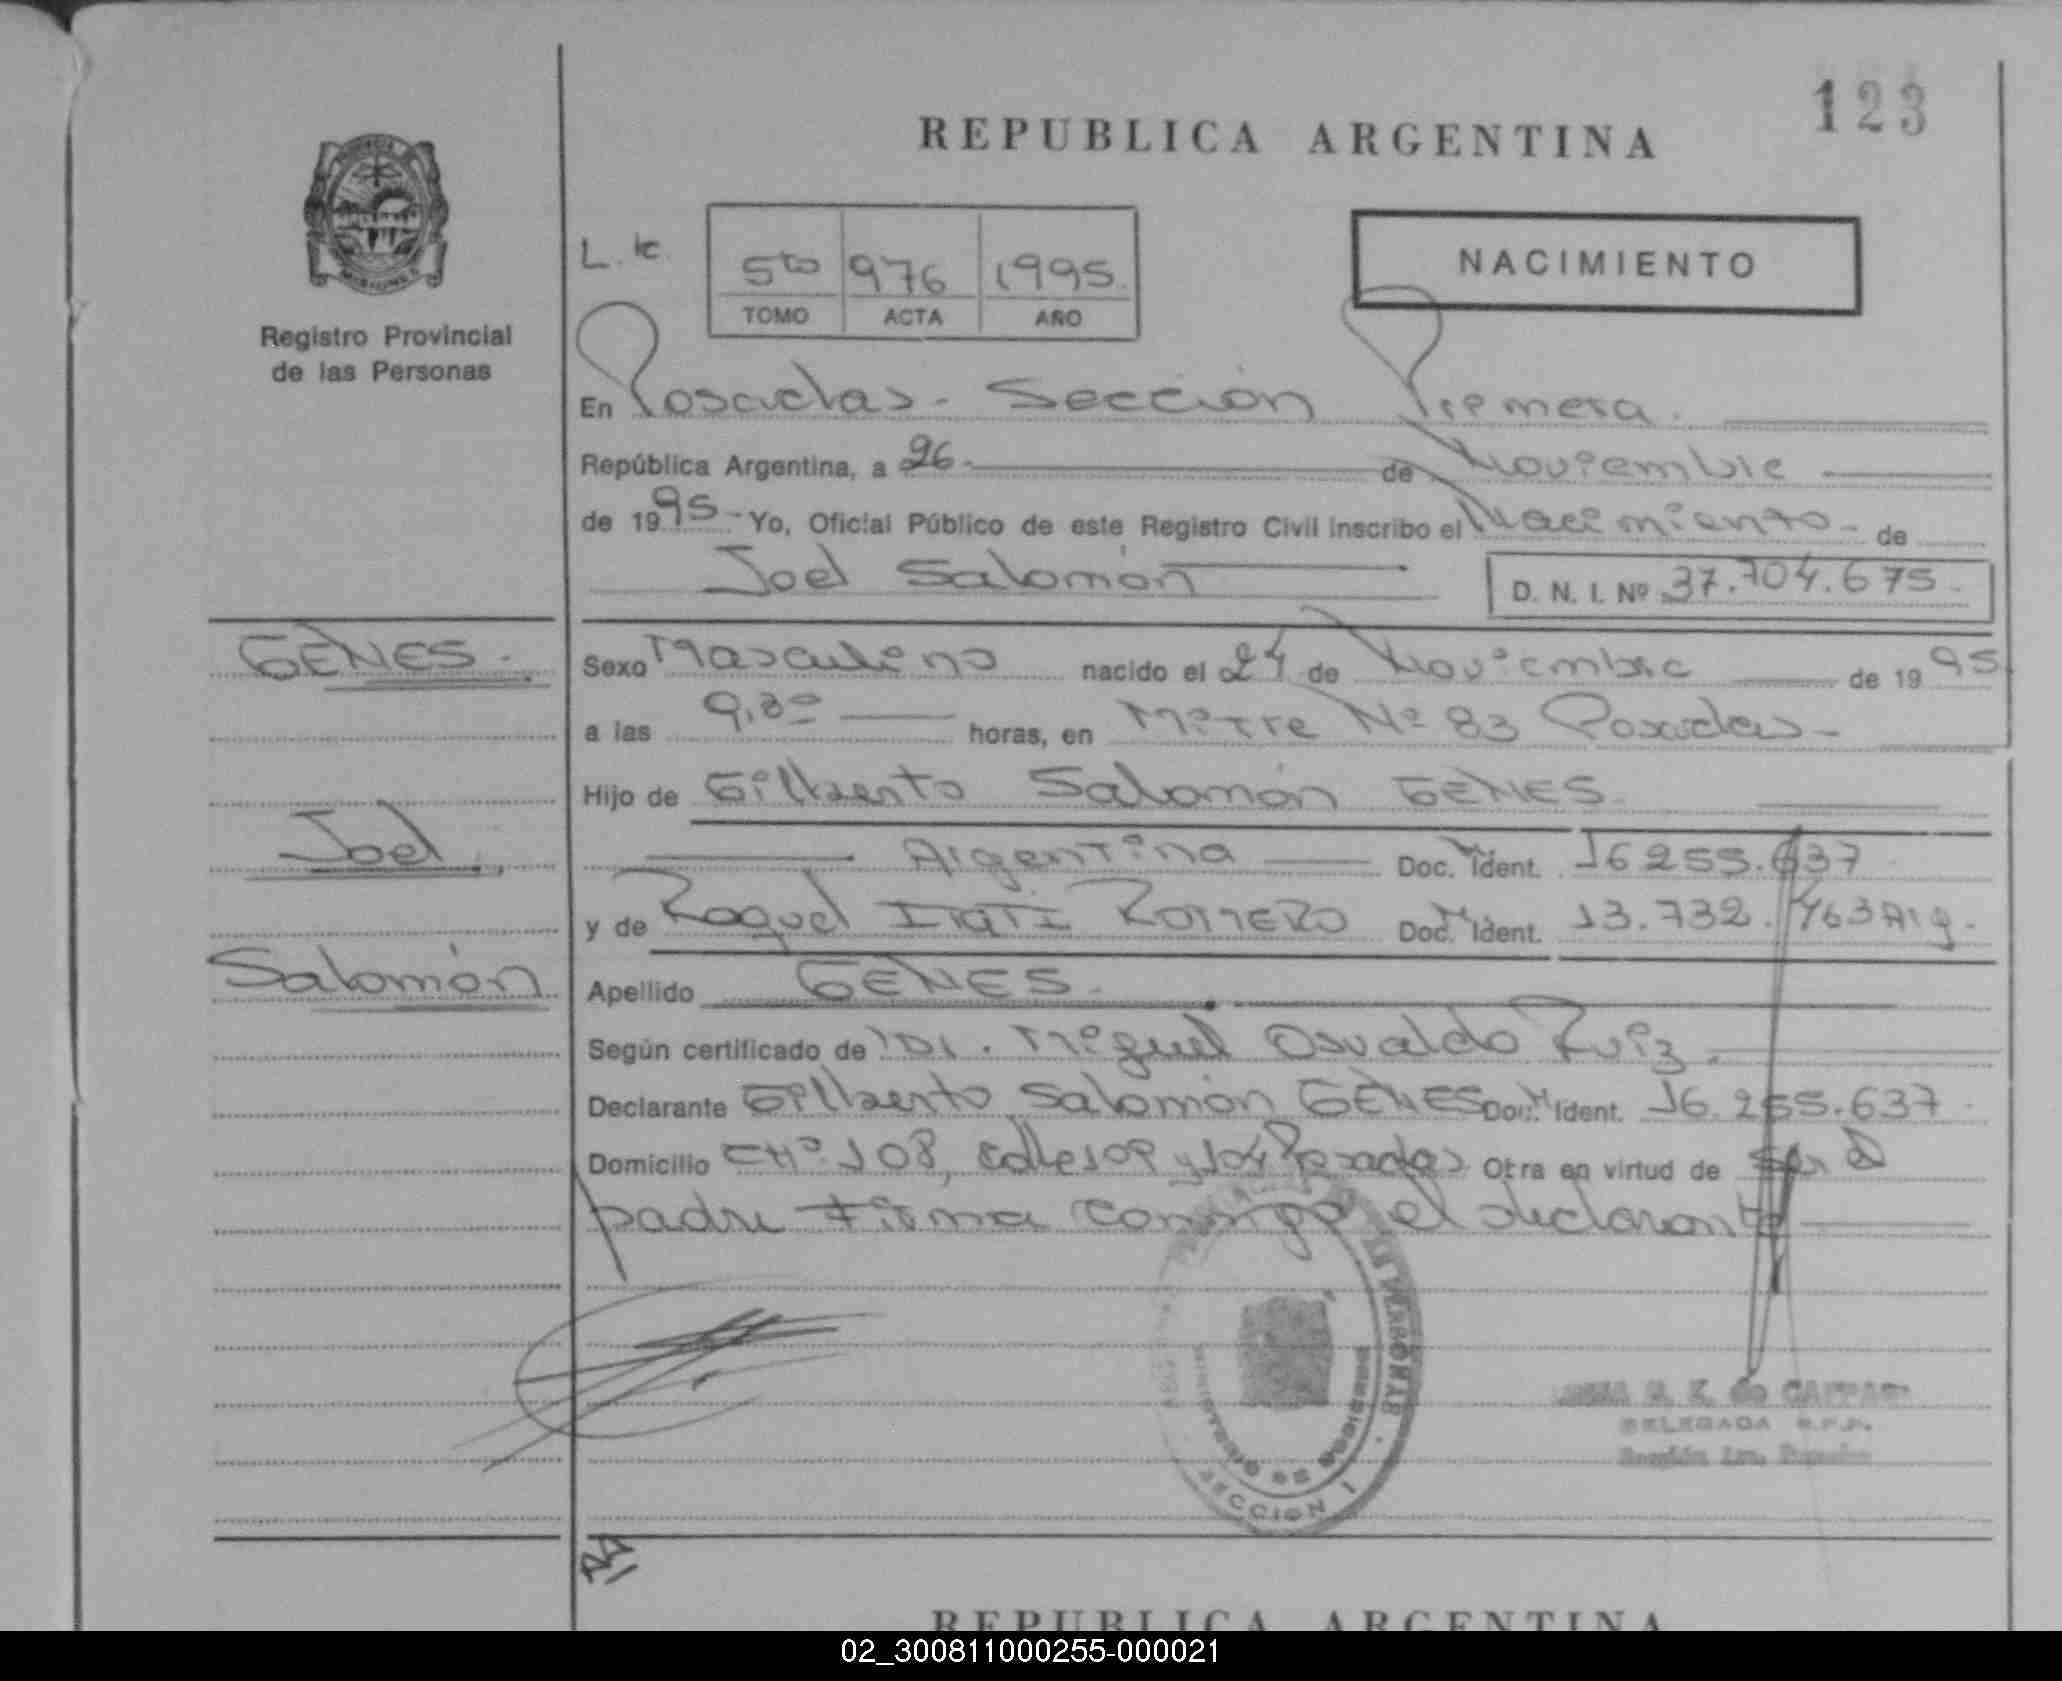 123
REPUBLICA ARGENTINA
Registro Provincial
de las Personas
5to 976 1995.
TOMO ACTA AÑO
NACIMIENTO
En Posadas - Sección Primera.
República Argentina, a 26 - de Noviembre
de 1995 - Yo, Oficial Público de este Registro Civil inscribo el Nacimiento - de
Joel Salomón
D. N. I. Nº 37.704.675 -
GENES.
Joel
Salomón
Sexo Masculino nacido el 24 de Noviembre de 1995
a las 9,30 horas, en Mitre Nº 83 Posadas -
Hijo de Gilberto Salomón GENES
Argentina Doc. Ident. 16 255.637
y de Raquel ITATI ROMERO Doc. Ident. 13.732.463 Arg.
Apellido GENES.
Según certificado de Dr. Miguel Osvaldo Ruiz.
Declarante Gilberto Salomón GENES Doc. Ident. 16.255.637
Domicilio CHª 108, calle 108 y 104 Posadas Otra en virtud de ser el
padre Firma conmigo el declarante
MINISTERIO DE GOBIERNO
LAS PERSONAS
SECCION 1
DELEGADA R.P.P.
REPUBLICA ARGENTINA
02_300811000255-000021